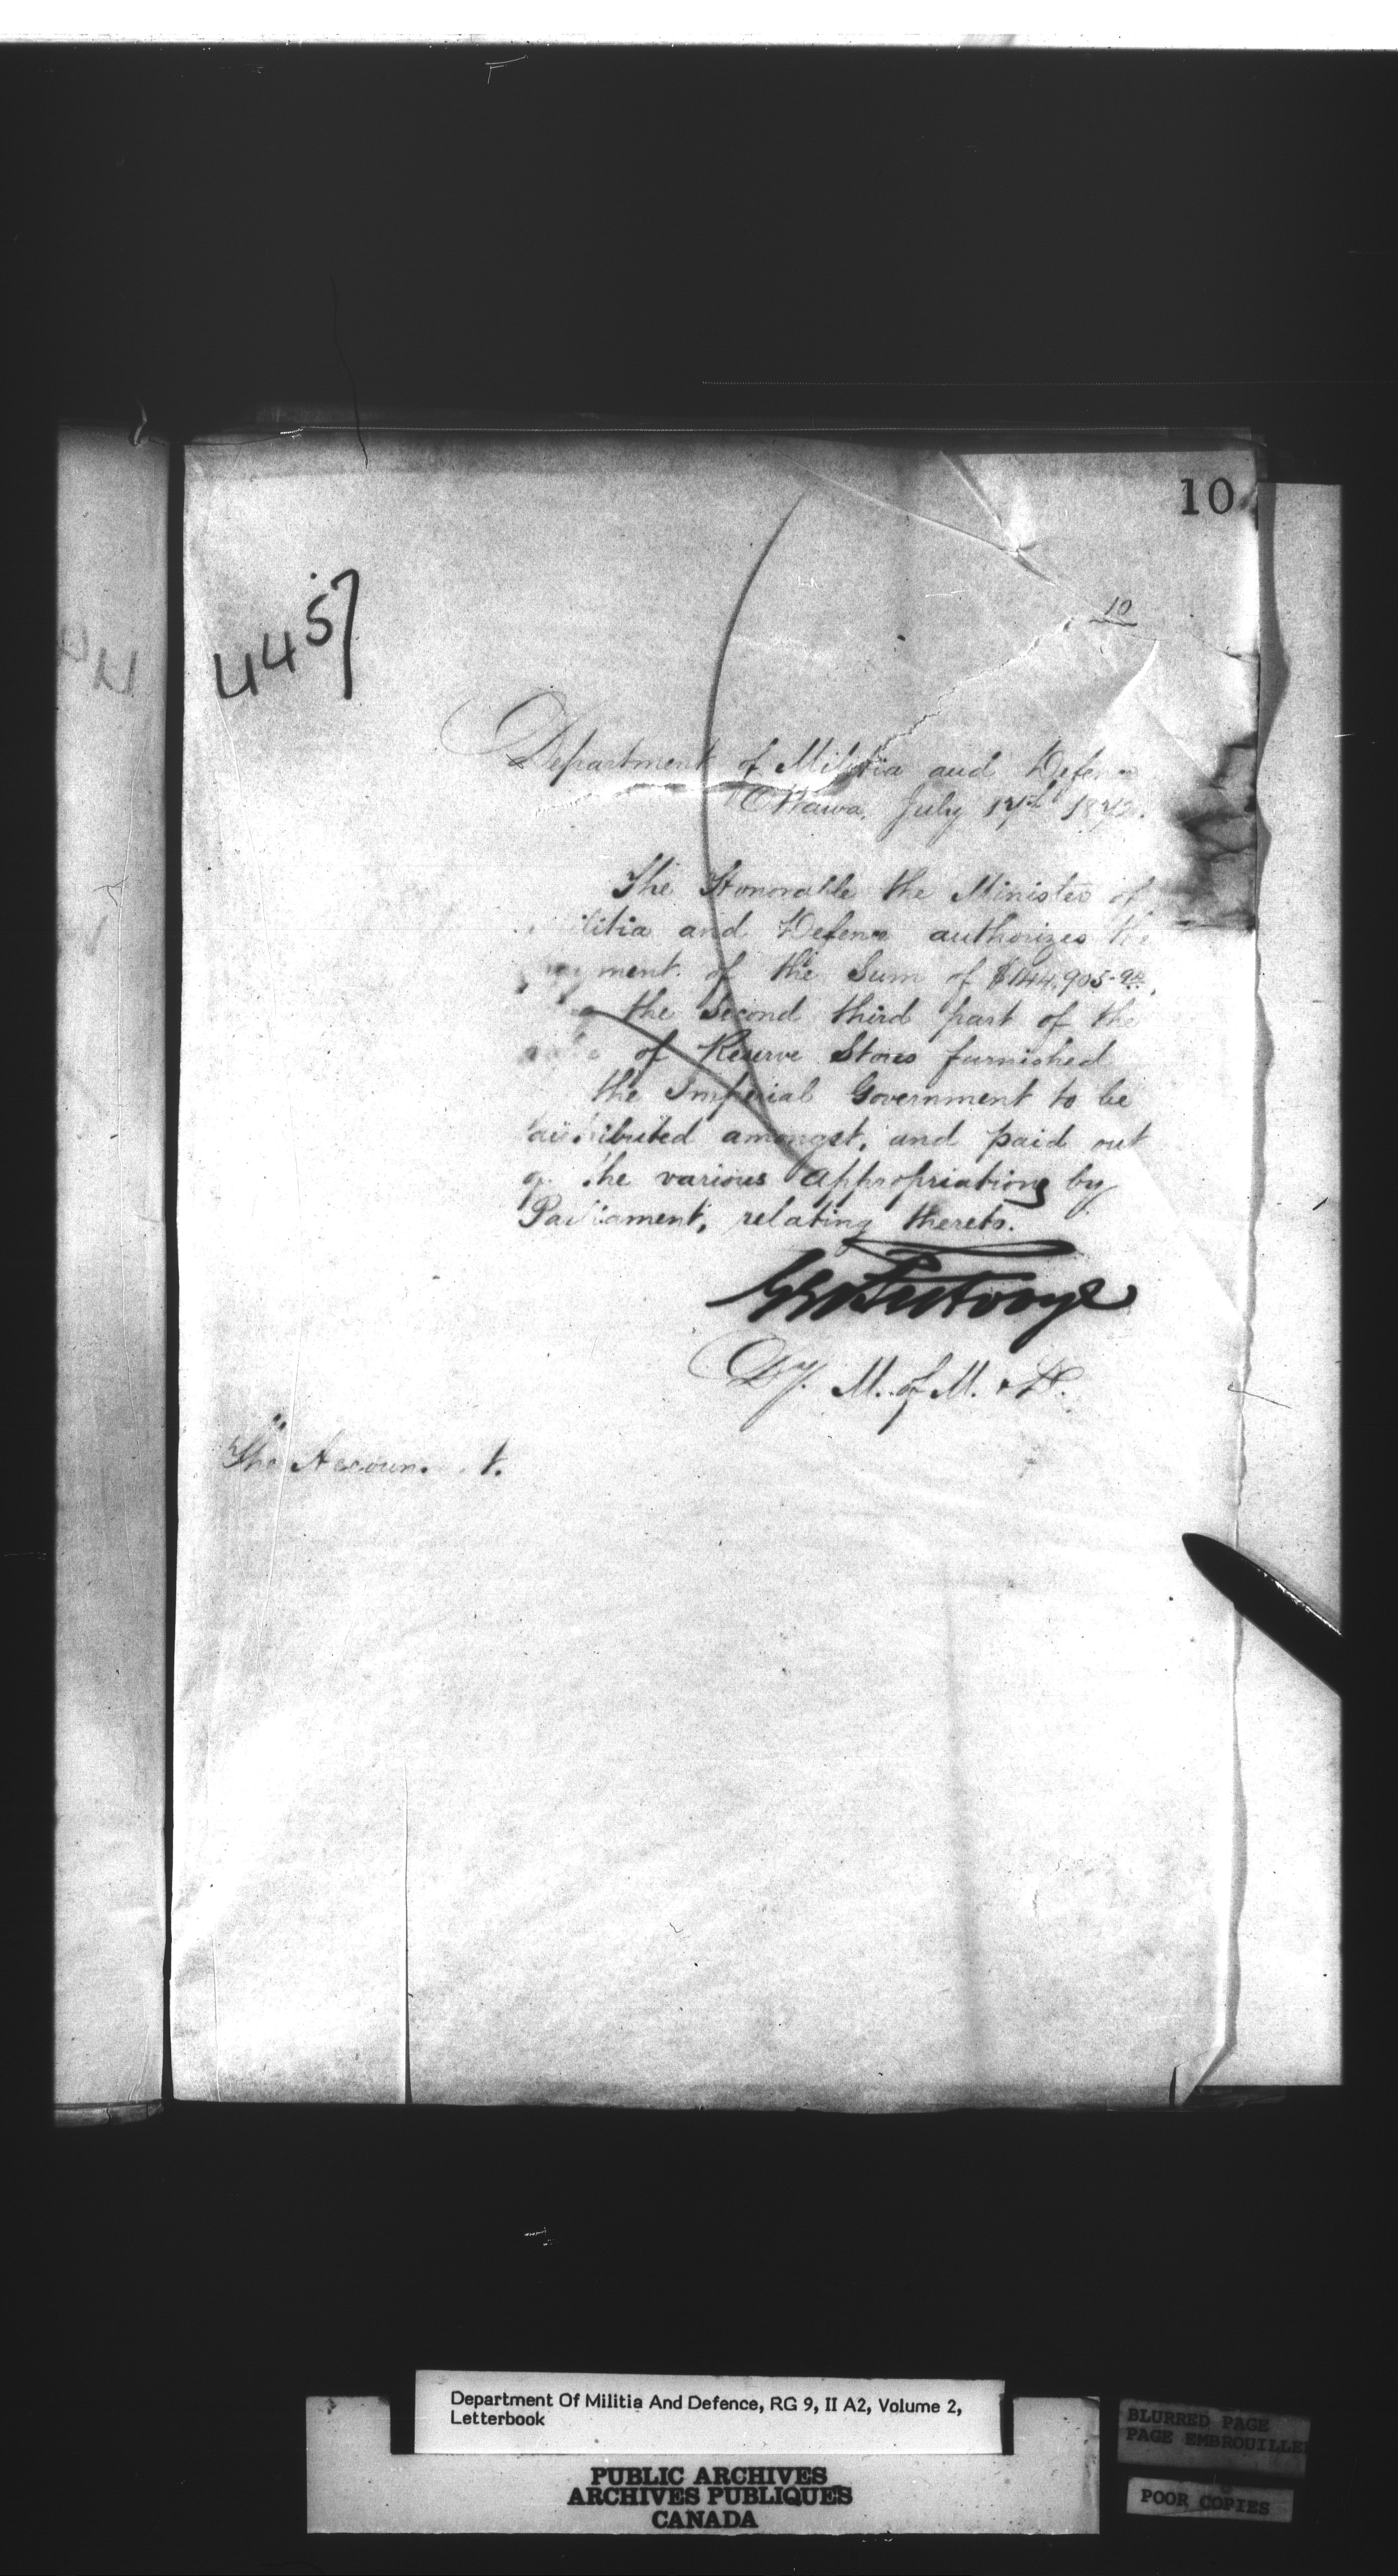 10
4457
10
Department of Militia and Defence
Ottawa, July 17th 1872.
The Honorable the Minister of
ilitia and Defence authorizes the
ment of the Sum of $144,905-92,
the Second third part of the
of Reserve Stores furnished
the Imperial Government to be
distributed amongst, and paid out
of the various Appropriations by
Parliament, relating thereto.
Dy. M. of M. & D.
The Accountant.
Department Of Militia And Defence, RG 9, II A2, Volume 2,
Letterbook
PUBLIC ARCHIVES
ARCHIVES PUBLIQUES
CANADA
BLURRED PAGE
PAGE EMBROUILLE
POOR COPIES